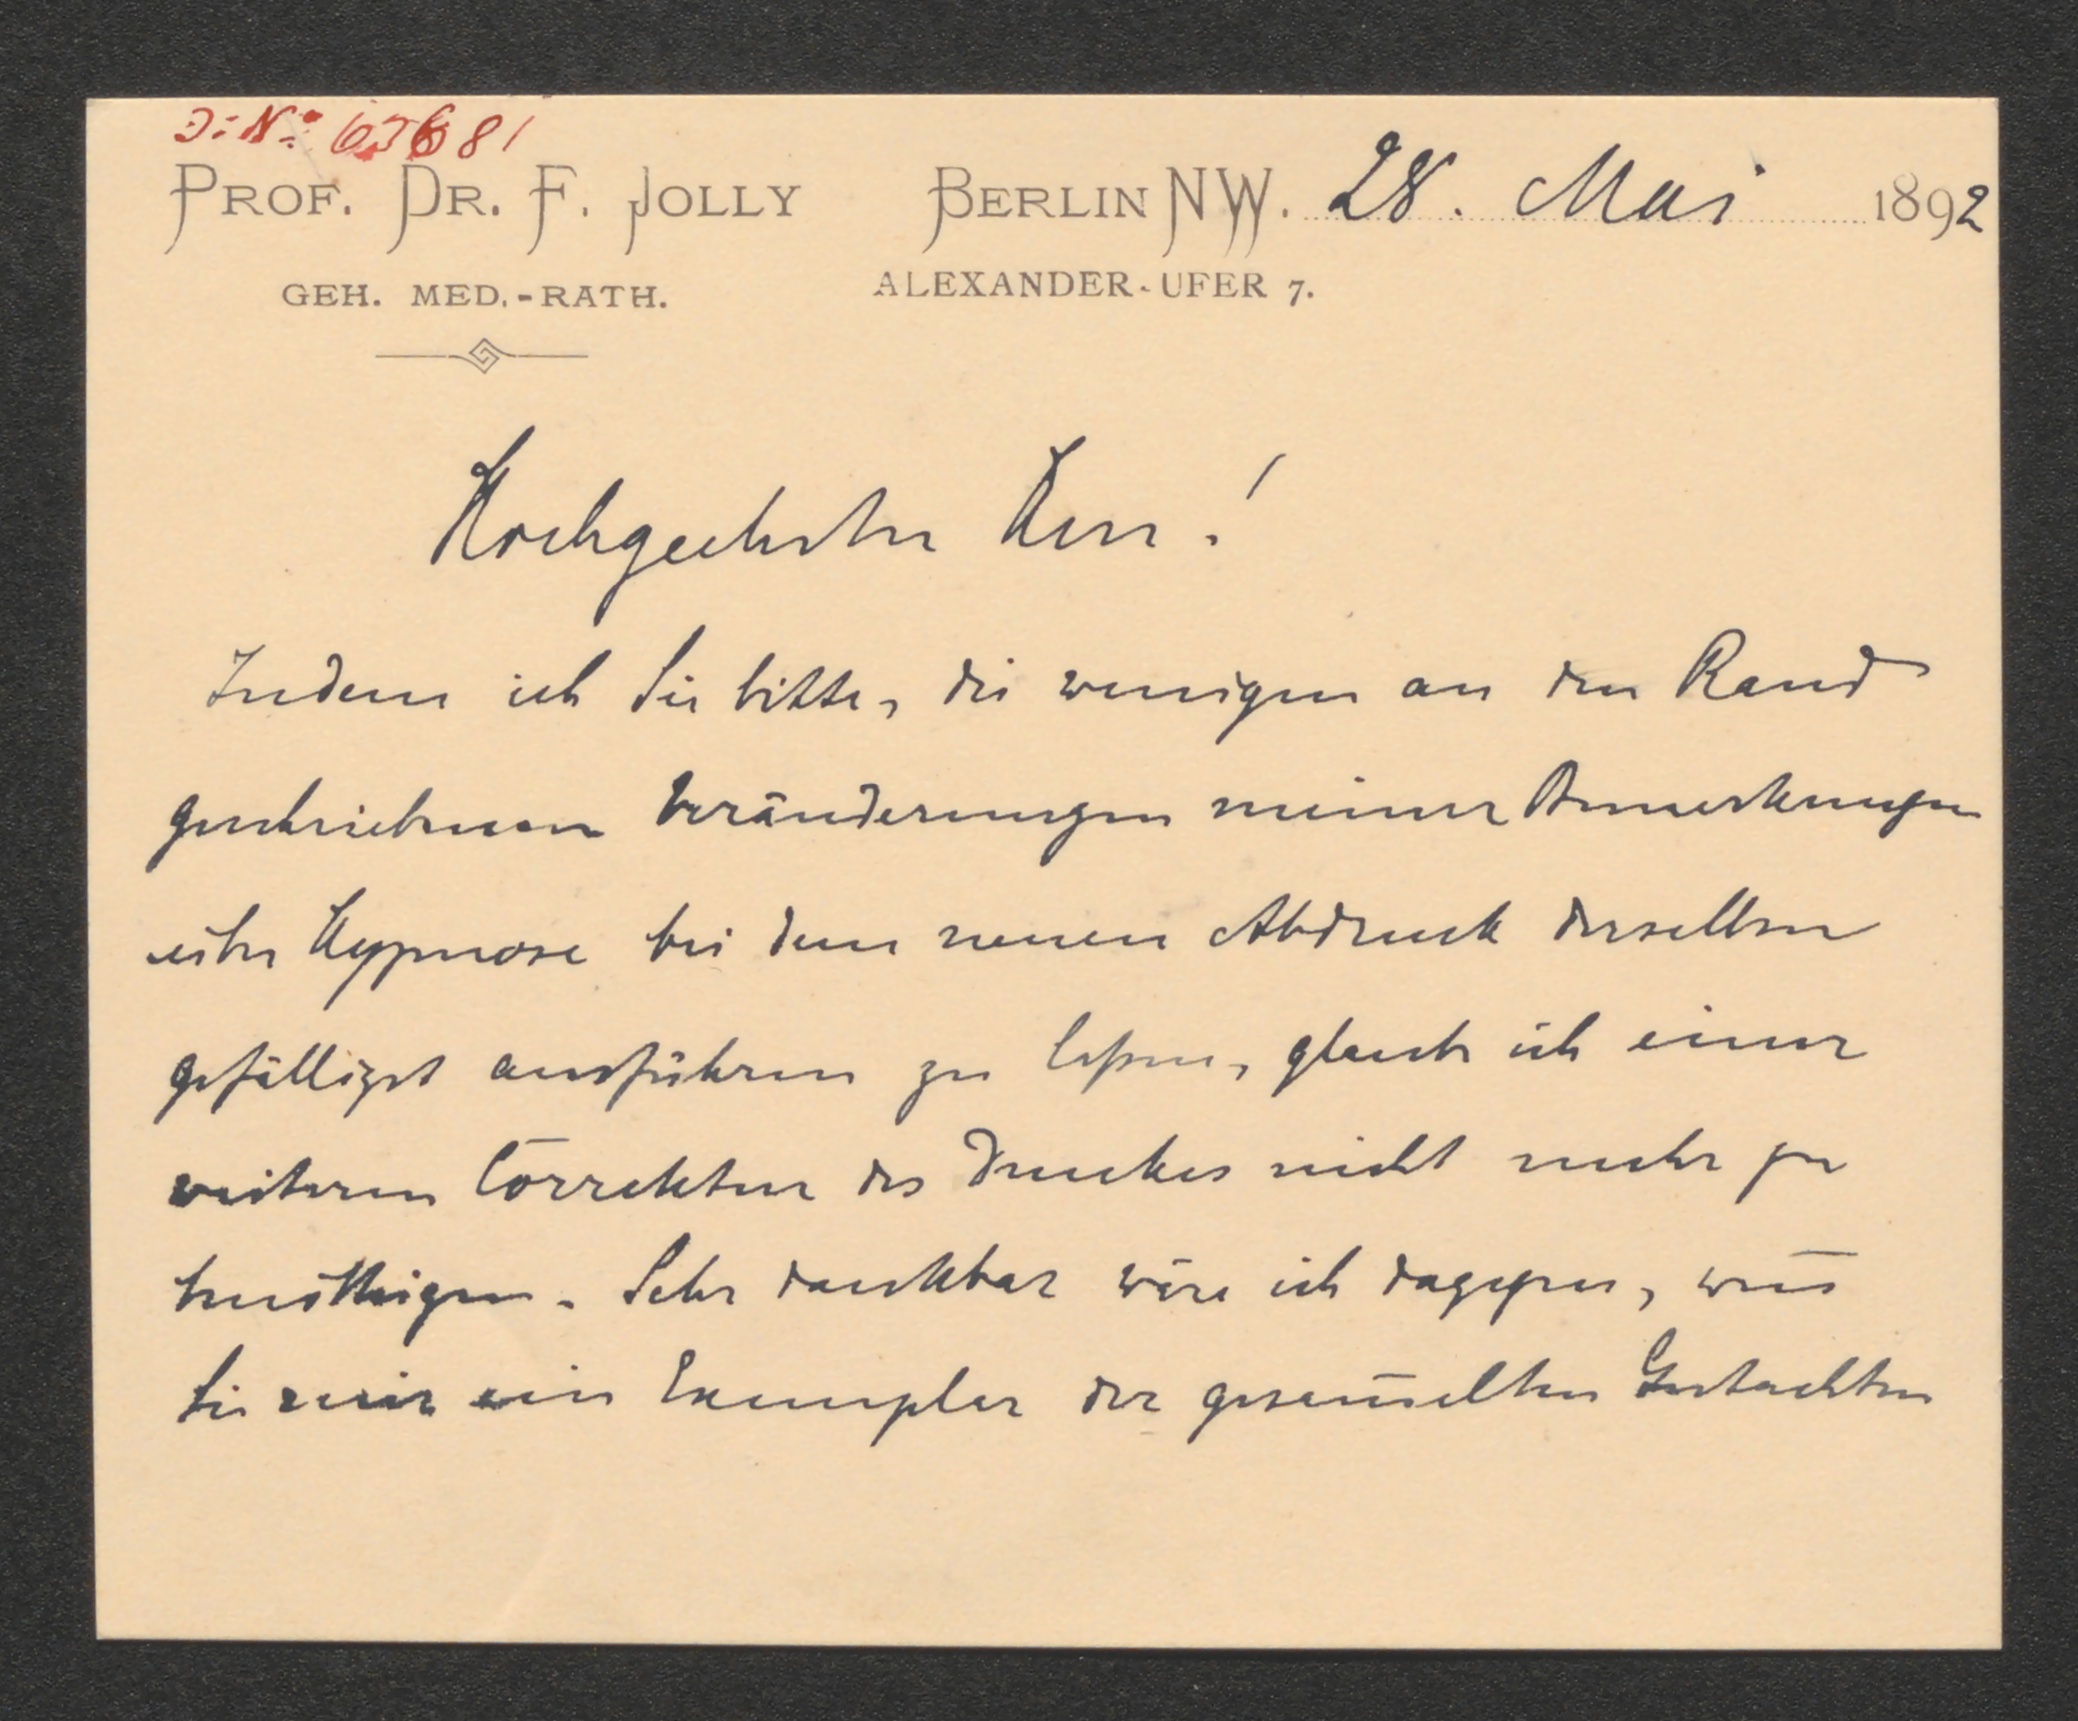 J: No: 63681
PROF. DR. F. JOLLY
GEH. MED.-RATH.
BERLIN NW. 28. Mai 1892
ALEXANDER-UFER 7.
Hochgeehrter Herr!
Indem ich Sie bitte, die wenigen an den Rand
geschriebenen Veränderungen meiner Bemerkungen
über Hypnose bei dem neuen Abdruck derselben
gefälligst ausführen zu laßen, glaube ich einer
weiteren Correktur des Druckes nicht mehr zu
benöthigen. Sehr dankbar wäre ich dagegen, weñ
Sie mir ein Exemplar der gesam̄elten Gutachten